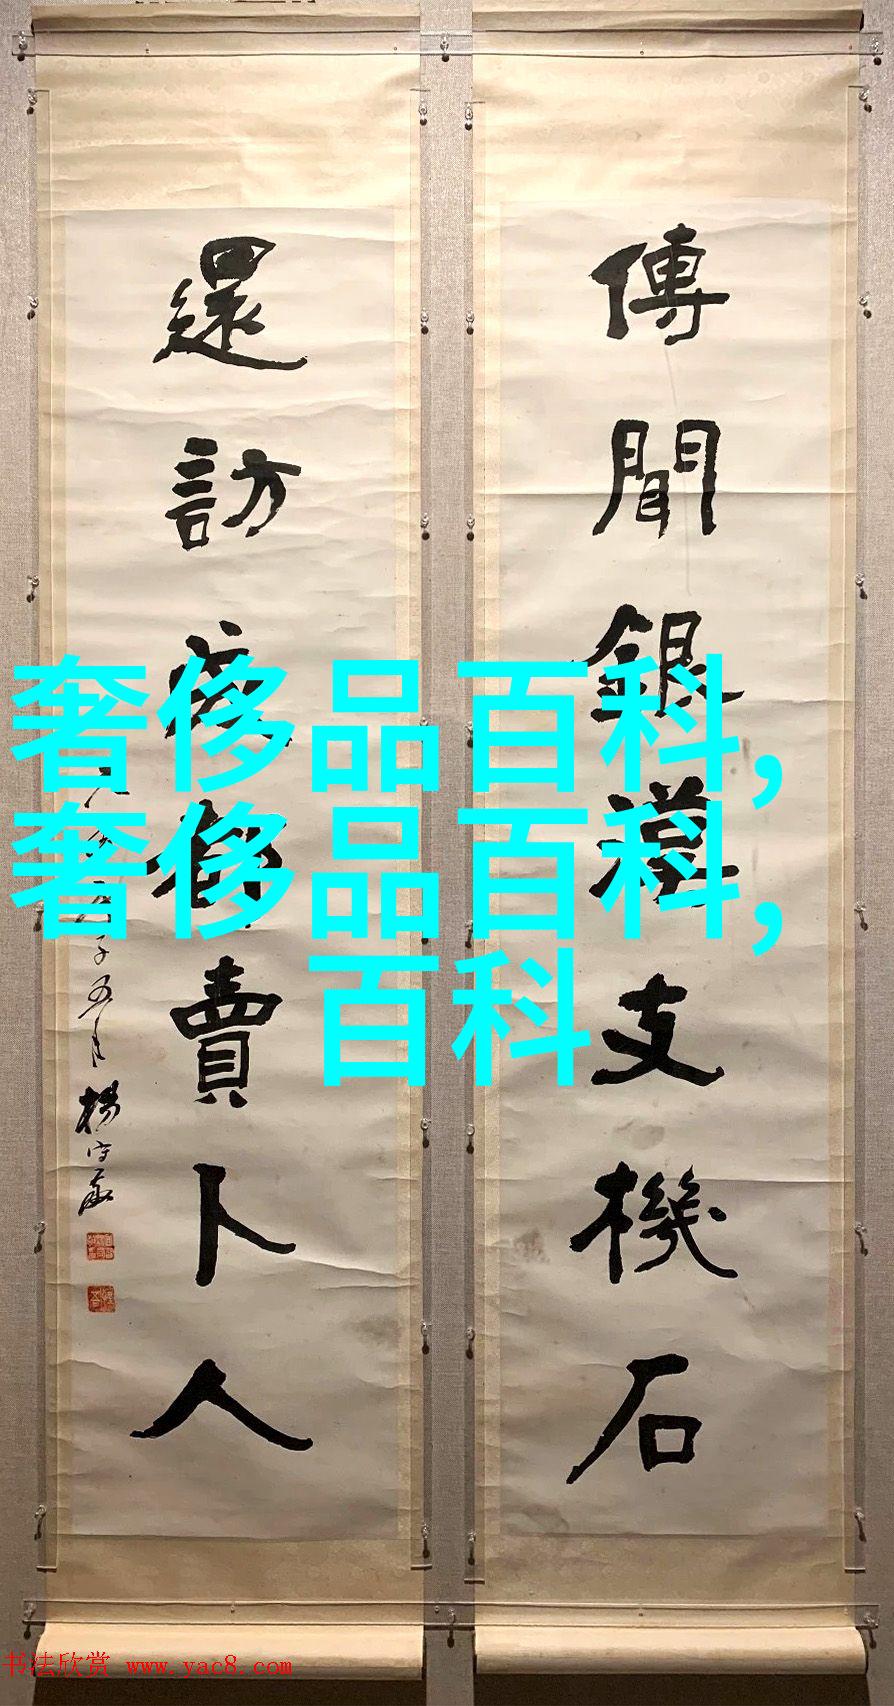 傳聞銀漢支機石
還訪成都賣卜人
五月楊守敬
奢侈品百科,
奢侈品百科,
百科
书法欣赏 www.yac8.com